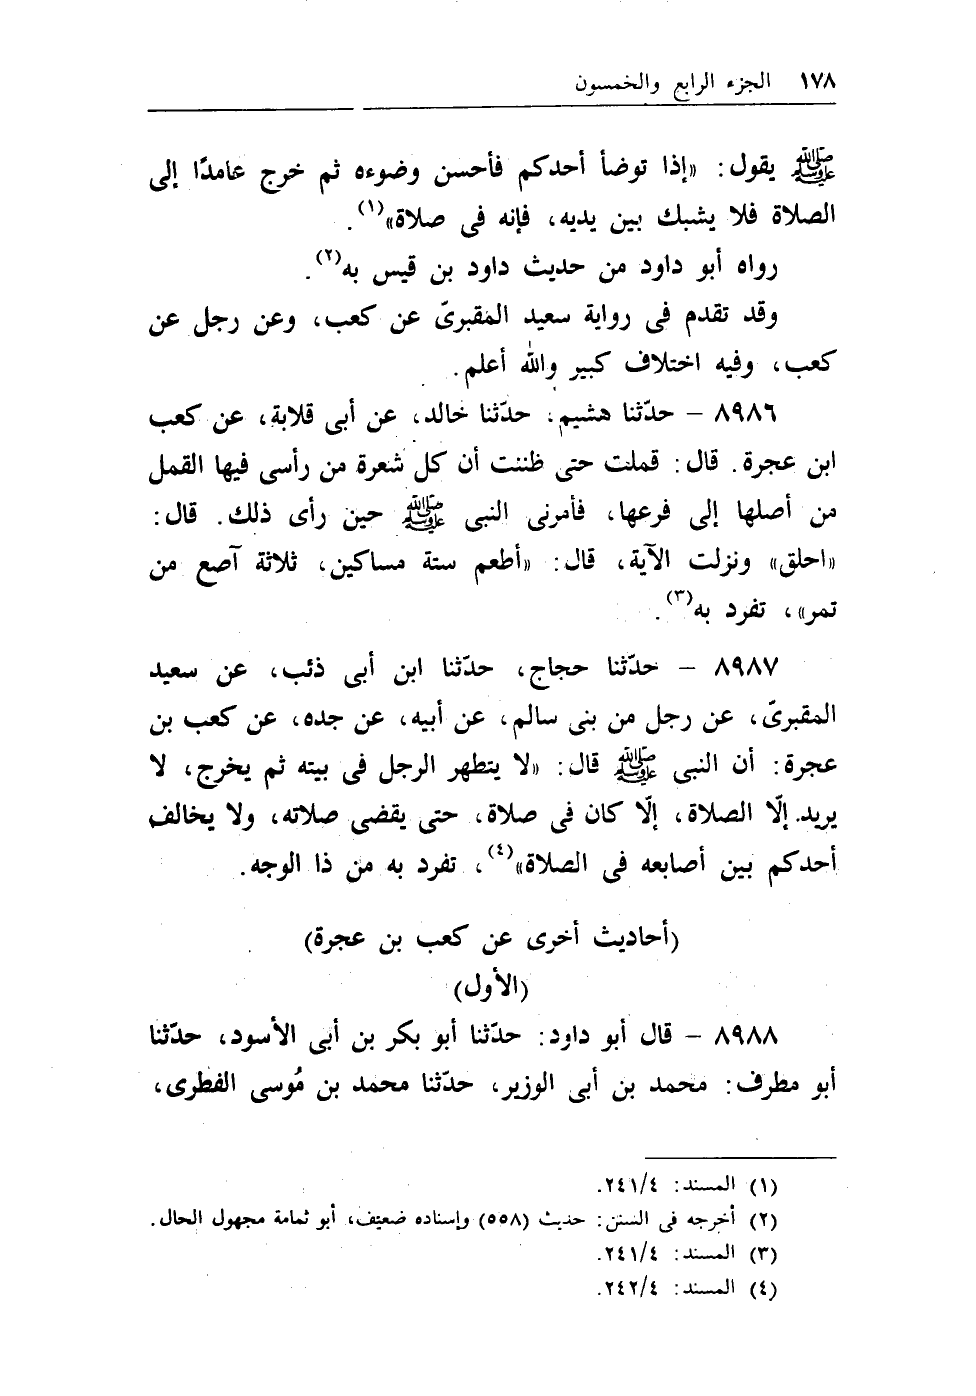 ١٧٨ الجزء الرابع والخمسون
ﷺ يقول: «إذا توضأ أحدكم فأحسن وضوءه ثم خرج عامدًا إلى
الصلاة فلا يشبك بين يديه، فإنه فى صلاة»(١).
رواه أبو داود من حديث داود بن قيس به(٢).
وقد تقدم فى رواية سعيد المقبرىّ عن كعب، وعن رجل عن
كعب، وفيه اختلاف كبير والله أعلم.
٨٩٨٦ – حدّثنا هشيم، حدّثنا خالد، عن أبى قلابة، عن كعب
ابن عجرة. قال: قملت حتى ظننت أن كل شعرة من رأسى فيها القمل
من أصلها إلى فرعها، فأمرنى النبى ﷺ حين رأى ذلك. قال:
«احلق» ونزلت الآية، قال: «أطعم ستة مساكين، ثلاثة آصع من
تمر»، تفرد به(٣).
٨٩٨٧ – حدّثنا حجاج، حدّثنا ابن أبى ذئب، عن سعيد
المقبرىّ، عن رجل من بنى سالم، عن أبيه، عن جده، عن كعب بن
عجرة: أن النبى ﷺ قال: «لا يتطهر الرجل فى بيته ثم يخرج، لا
يريد إلّا الصلاة، إلّا كان فى صلاة، حتى يقضى صلاته، ولا يخالف
أحدكم بين أصابعه فى الصلاة»(٤)، تفرد به من ذا الوجه.
(أحاديث أخرى عن كعب بن عجرة)
(الأول)
٨٩٨٨ – قال أبو داود: حدّثنا أبو بكر بن أبى الأسود، حدّثنا
أبو مطرف: محمد بن أبى الوزير، حدّثنا محمد بن مُوسى الفطرى،
(١) المسند: ٢٤١/٤.
(٢) أخرجه فى السنن: حديث (٥٥٨) وإسناده ضعيف، أبو ثمامة مجهول الحال.
(٣) المسند: ٢٤١/٤.
(٤) المسند: ٢٤٢/٤.